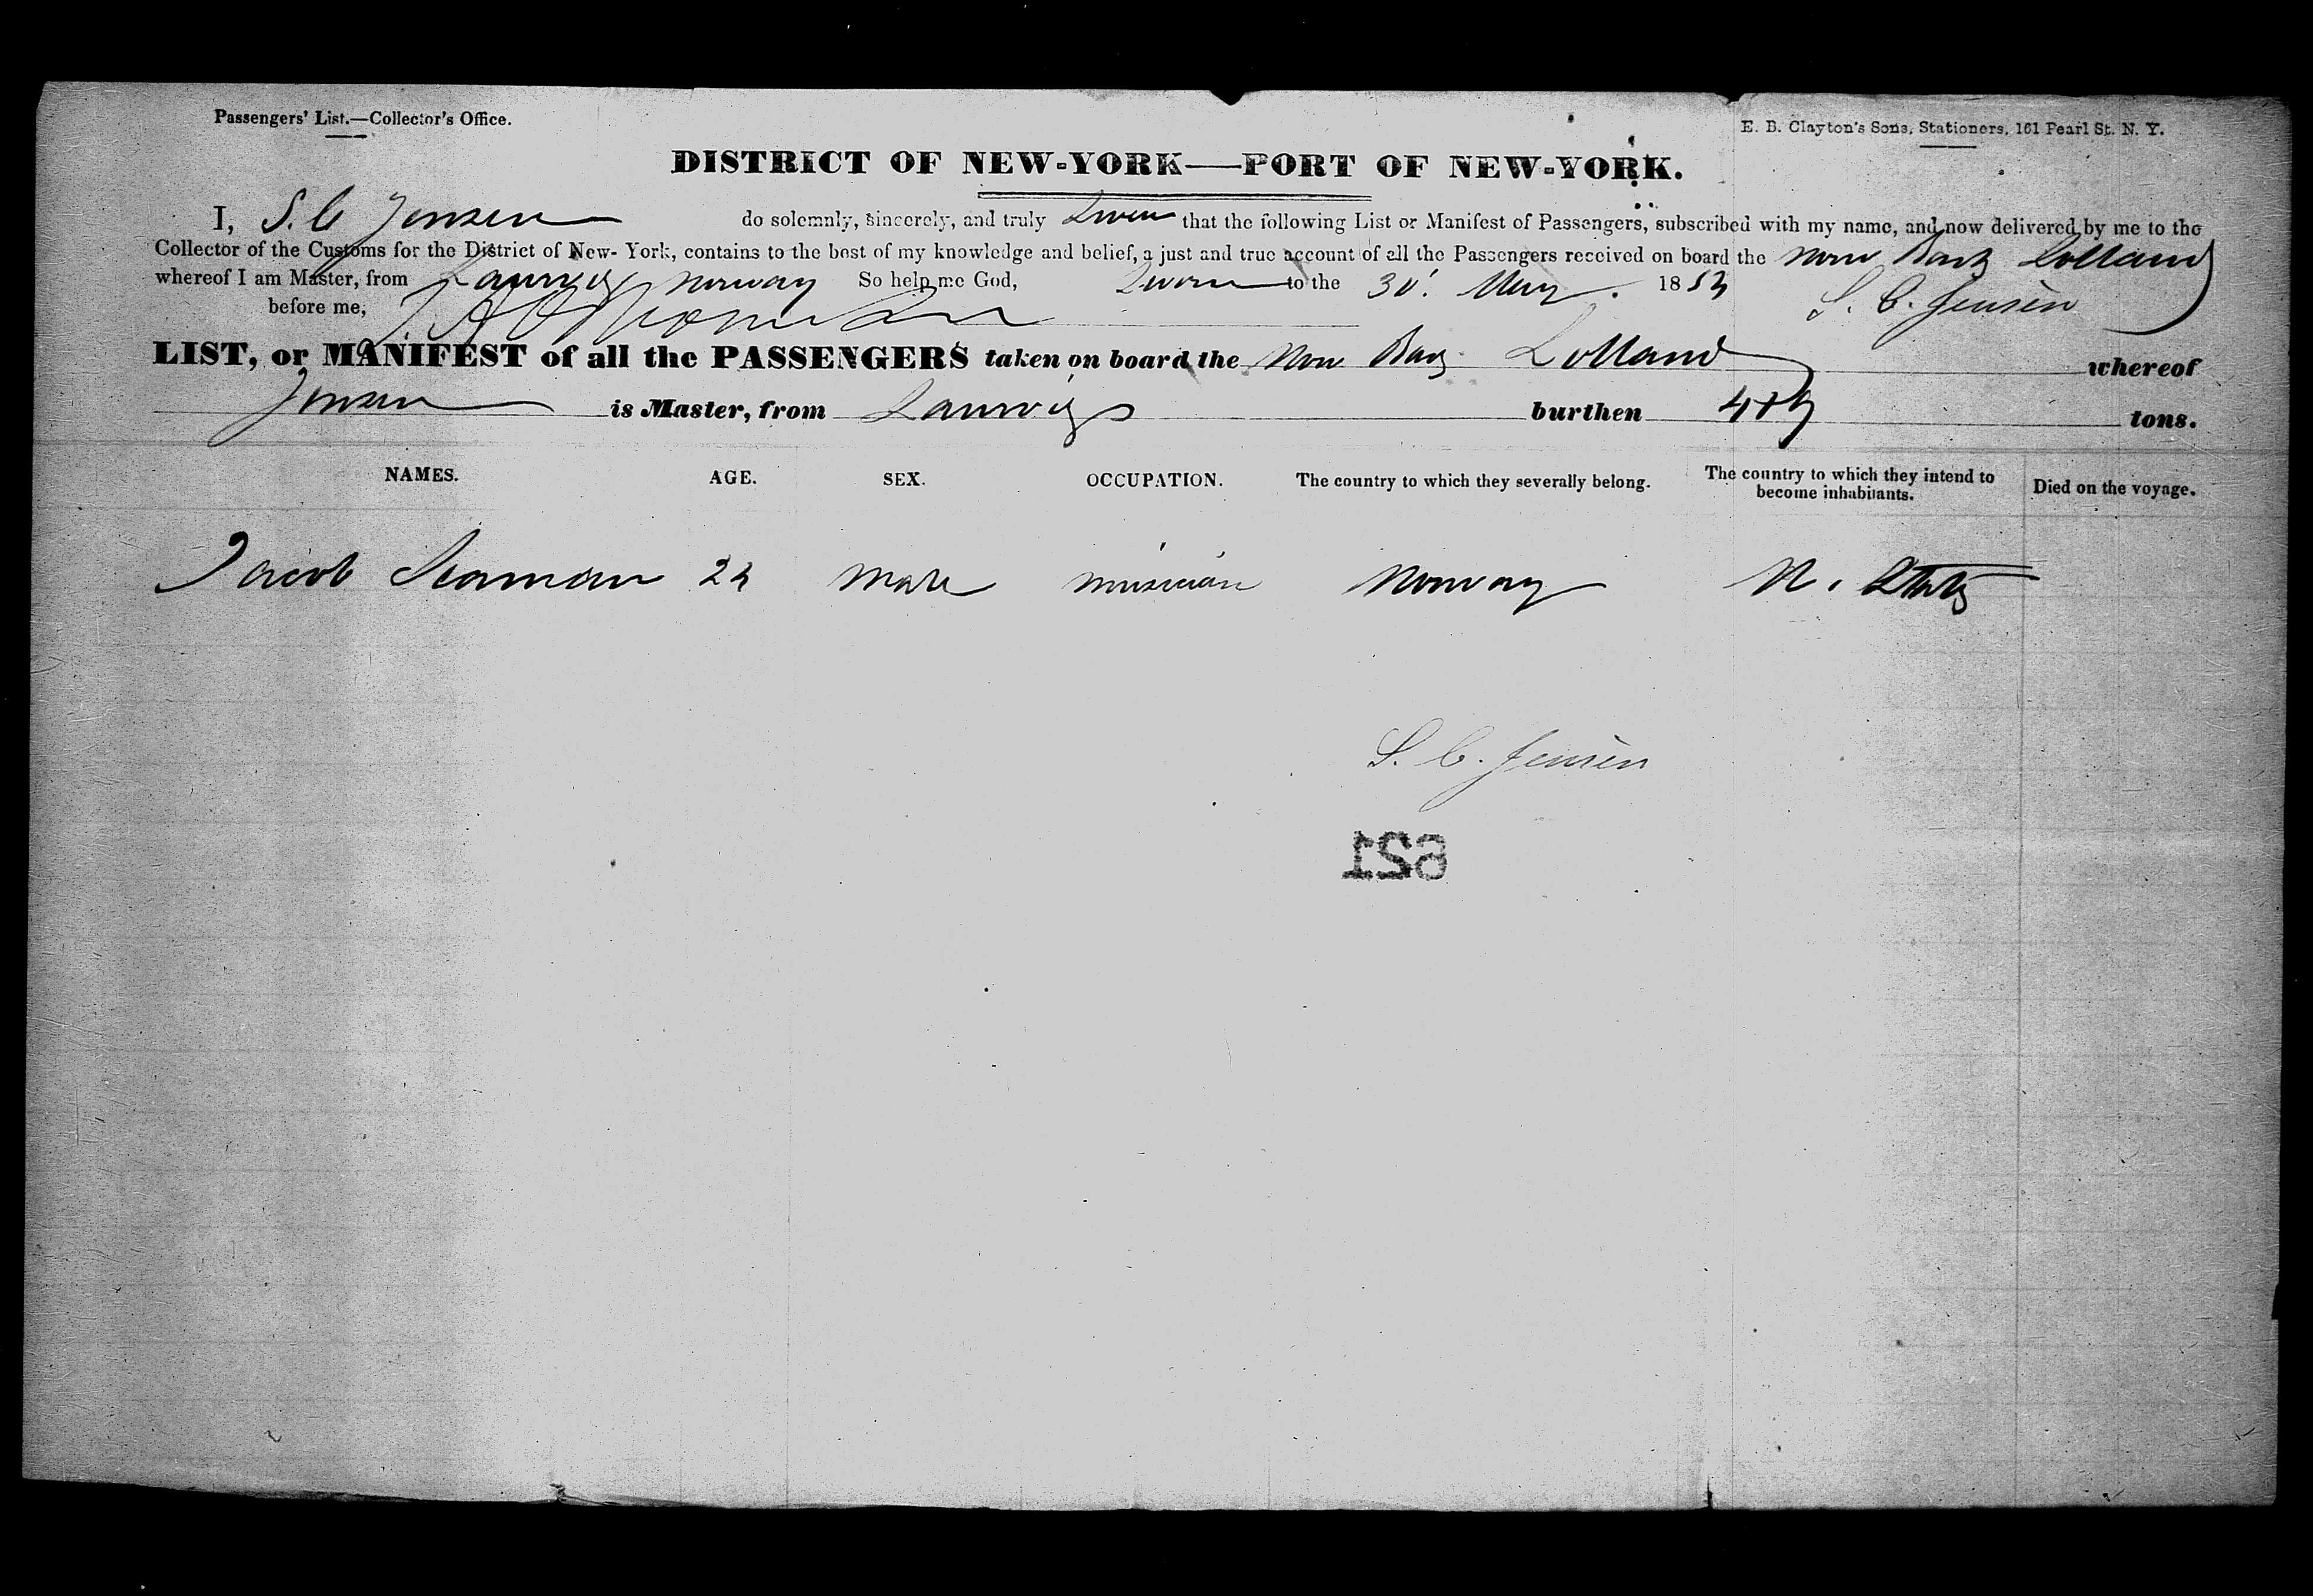 Passengers' List.—Collector's Office.
E. B. Clayton's Sons, Stationers, 161 Pearl St. N. Y.
DISTRICT OF NEW-YORK—PORT OF NEW-YORK.
I, S. C. Jensen do solemnly, sincerely, and truly Swear that the following List or Manifest of Passengers, subscribed with my name, and now delivered by me to the
Collector of the Customs for the District of New-York, contains to the best of my knowledge and belief, a just and true account of all the Passengers received on board the Norw Bark Lolland
whereof I am Master, from Laurvig Norway So help me God, Sworn to the 30. May 18
before me, S. C. Jensen
LIST, or MANIFEST of all the PASSENGERS taken on board the Norw Bark Lolland whereof
Jensen is Master, from Laurvig burthen tons.
NAMES. AGE. SEX. OCCUPATION. The country to which they severally belong. The country to which they intend to become inhabitants. Died on the voyage.
Jacob Seaman male musician Norway States
S. C. Jensen
621